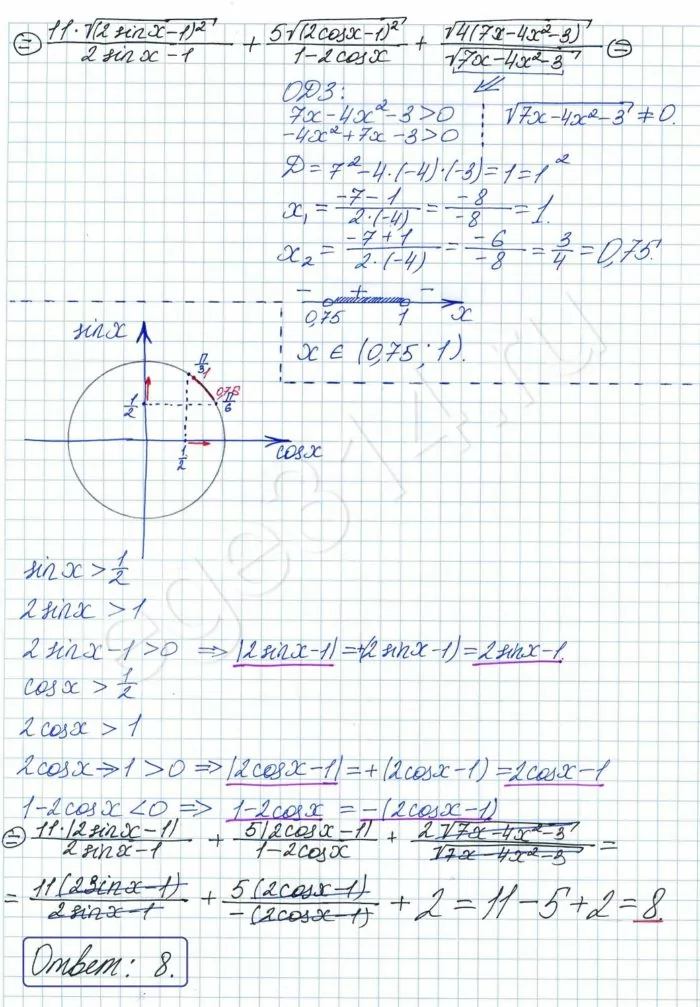 = 11·√(2sinx-1)² / 2sinx-1 + 5√(2cosx-1)² / 1-2cosx + √4(7x-4x²-3) / √7x-4x²-3 =
ОДЗ:
7x-4x²-3>0
-4x²+7x-3>0
√7x-4x²-3 ≠0.
Д=7²-4·(-4)·(-3)=1=1²
x₁ = -7-1 / 2·(-4) = -8 / -8 = 1.
x₂ = -7+1 / 2·(-4) = -6 / -8 = 3/4 = 0,75.
- + -
0,75 1 x
x ∈ (0,75; 1).
sinx
π/3 1
0,75 π/6
1/2
1/2
cosx
sinx > 1/2
2sinx > 1
2sinx-1>0 ⇒ |2sinx-1|=+(2sinx-1)=2sinx-1.
cosx > 1/2
2cosx > 1
2cosx-1>0 ⇒ |2cosx-1|=+(2cosx-1)=2cosx-1
1-2cosx<0 ⇒ 1-2cosx = -(2cosx-1)
= 11·|2sinx-1| / 2sinx-1 + 5|2cosx-1| / 1-2cosx + 2√7x-4x²-3 / √7x-4x²-3 =
= 11(2sinx-1) / 2sinx-1 + 5(2cosx-1) / -(2cosx-1) + 2 = 11-5+2=8.
Ответ: 8.
ege314.ru